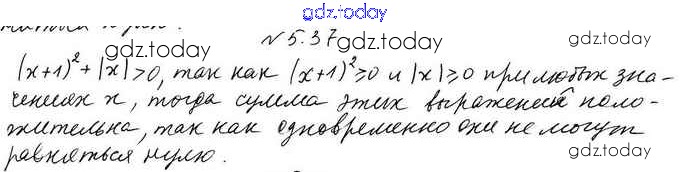 gdz.today
№ 5.37
gdz.today gdz.today
(x+1)² + |x| > 0, так как (x+1)² ≥ 0 и |x| ≥ 0 при любых зна-
чениях x, тогда сумма этих выражений поло-
gdz.today gdz.today
жительна, так как одновременно они не могут
равняться нулю. gdz.today